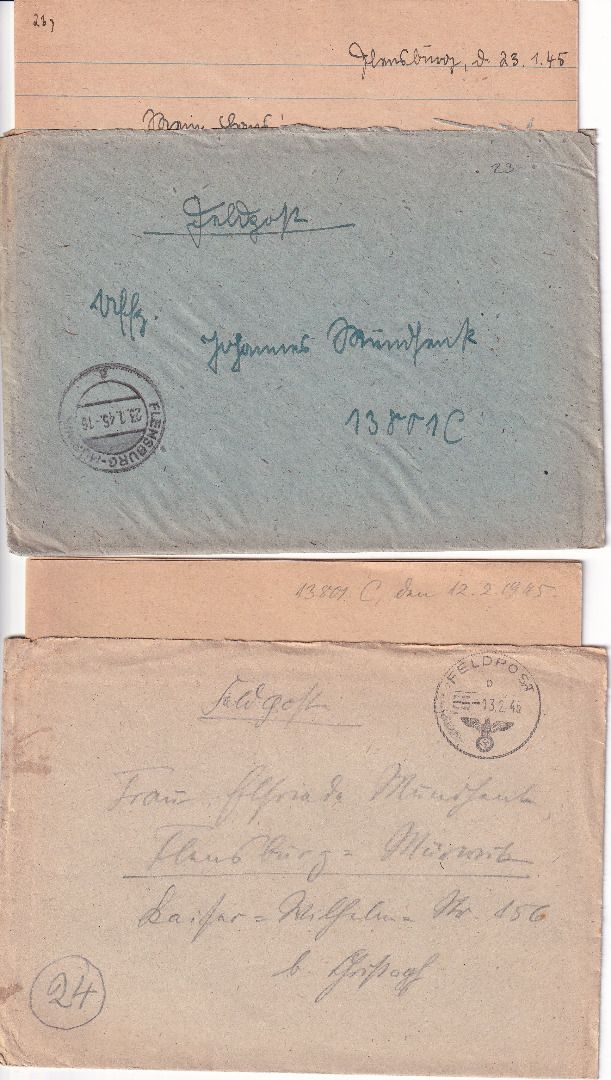 23,
Flensburg, d. 23.1.45
Mein Hans!
23
Feldpost
Uffz.
Johannes Mundhenk
13801C
FLENSBURG-MÜRWIK
a
23.1.45.-16
13801 C, den 12.2.1945.
FELDPOST
b
-13.2.45
Feldpost
Frau Elfriede Mundhenk,
Flensburg = Mürwik
Kaiser = Wilhelm = Str. 156
b.
24